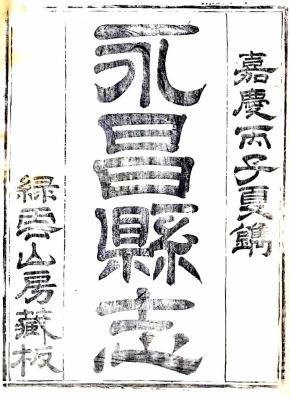 嘉慶丙子夏鐫
永昌縣志
綠雲山房藏板